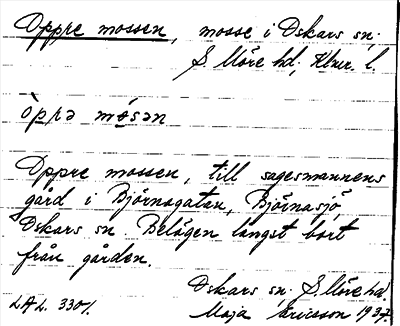 Oppre mossen, mosse i Oskars sn.
S. Möre hd, Klmr. l.
òprə mósən
Oppre mossen, till sagesmannens
gård i Björnagatan, Björnasjö,
Oskars sn. Belägen längst bort
från gården.
Oskars sn. S. Möre hd.
L.A.L. 3301. Maja Ericsson 1937.